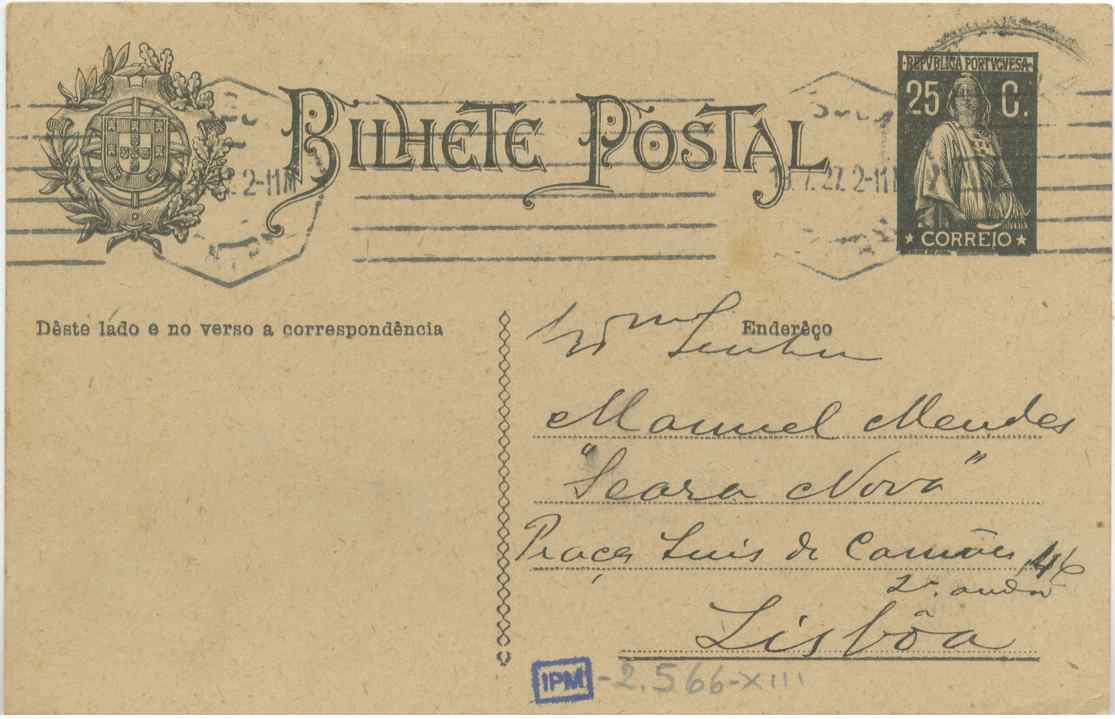 BILHETE POSTAL
REPVBLICA PORTVGVESA
25 C.
CORREIO
2-11
.7.27. 2-11
Dêste lado e no verso a correspondência
Enderêço
Senhor
Manuel Mendes
"Seara Nova"
Praça Luis de Camões, 46
2º andar
Lisbôa
IPM -2.566-XIII